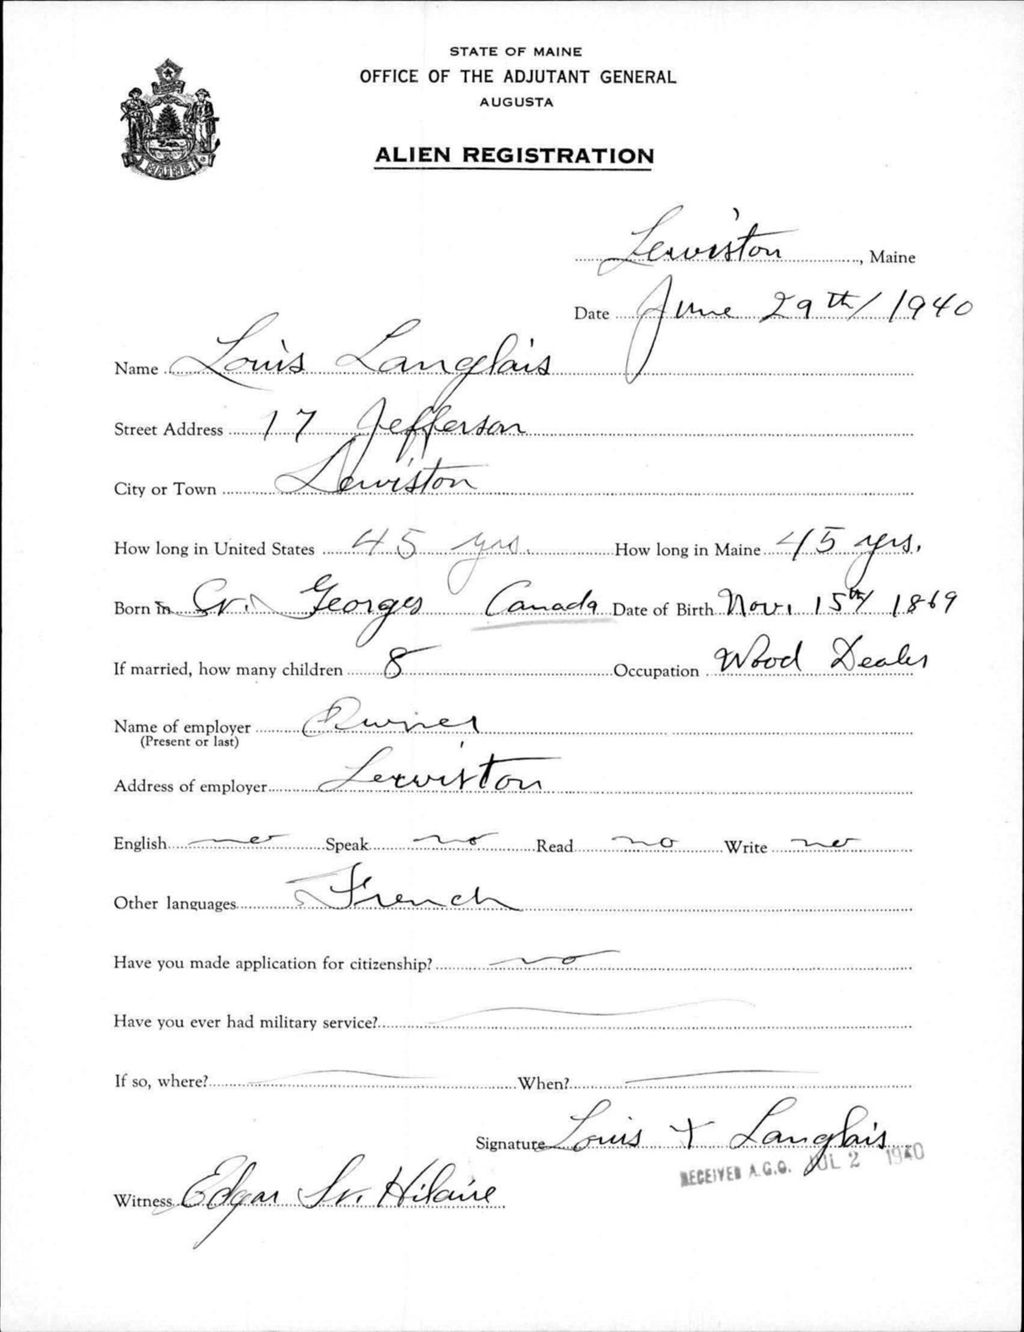 STATE OF MAINE
OFFICE OF THE ADJUTANT GENERAL
AUGUSTA
ALIEN REGISTRATION
MAINE
Lewiston, Maine
Date June 29th/1940
Name Louis Langlais
Street Address 17 Jefferson
City or Town Lewiston
How long in United States 45 yrs. How long in Maine 45 yrs.
Born in St. Georges Canada Date of Birth Nov. 15th/1869
If married, how many children 8 Occupation Wood Dealer
Name of employer Owner
(Present or last)
Address of employer Lewiston
English no Speak no Read no Write no
Other languages French
Have you made application for citizenship? no
Have you ever had military service?
If so, where? When?
Signature Louis X Langlais
RECEIVED A.G.O. JUL 2 1940
Witness Edgar St. Hilaire